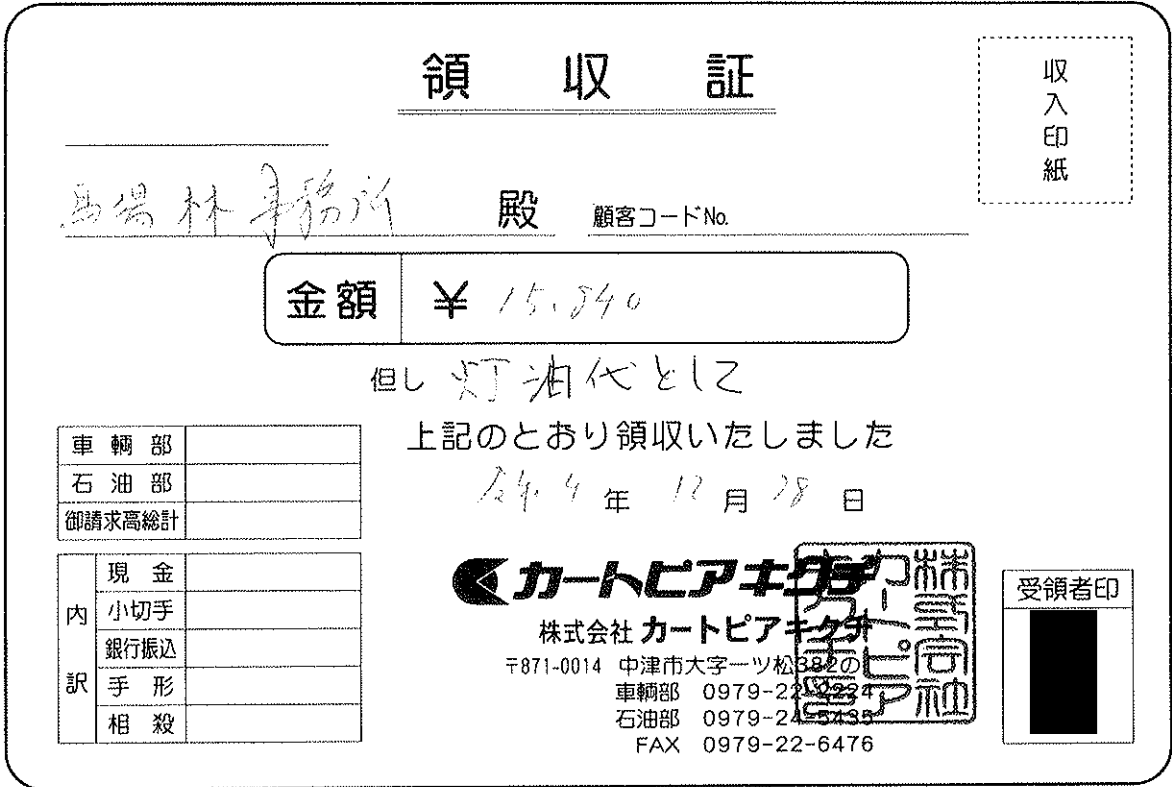 領収証
収入印紙
馬場林事務所 殿 顧客コードNo.
金額 ¥ 15,840
但し 灯油代として
上記のとおり領収いたしました
令和 4 年 12 月 28 日
車輌部
石油部
御請求高総計
内訳
現金
小切手
銀行振込
手形
相殺
カートピアキクチ
株式会社 カートピアキクチ
〒871-0014 中津市大字一ツ松382の
車輌部 0979-22-2224
石油部 0979-24-5435
FAX 0979-22-6476
受領者印